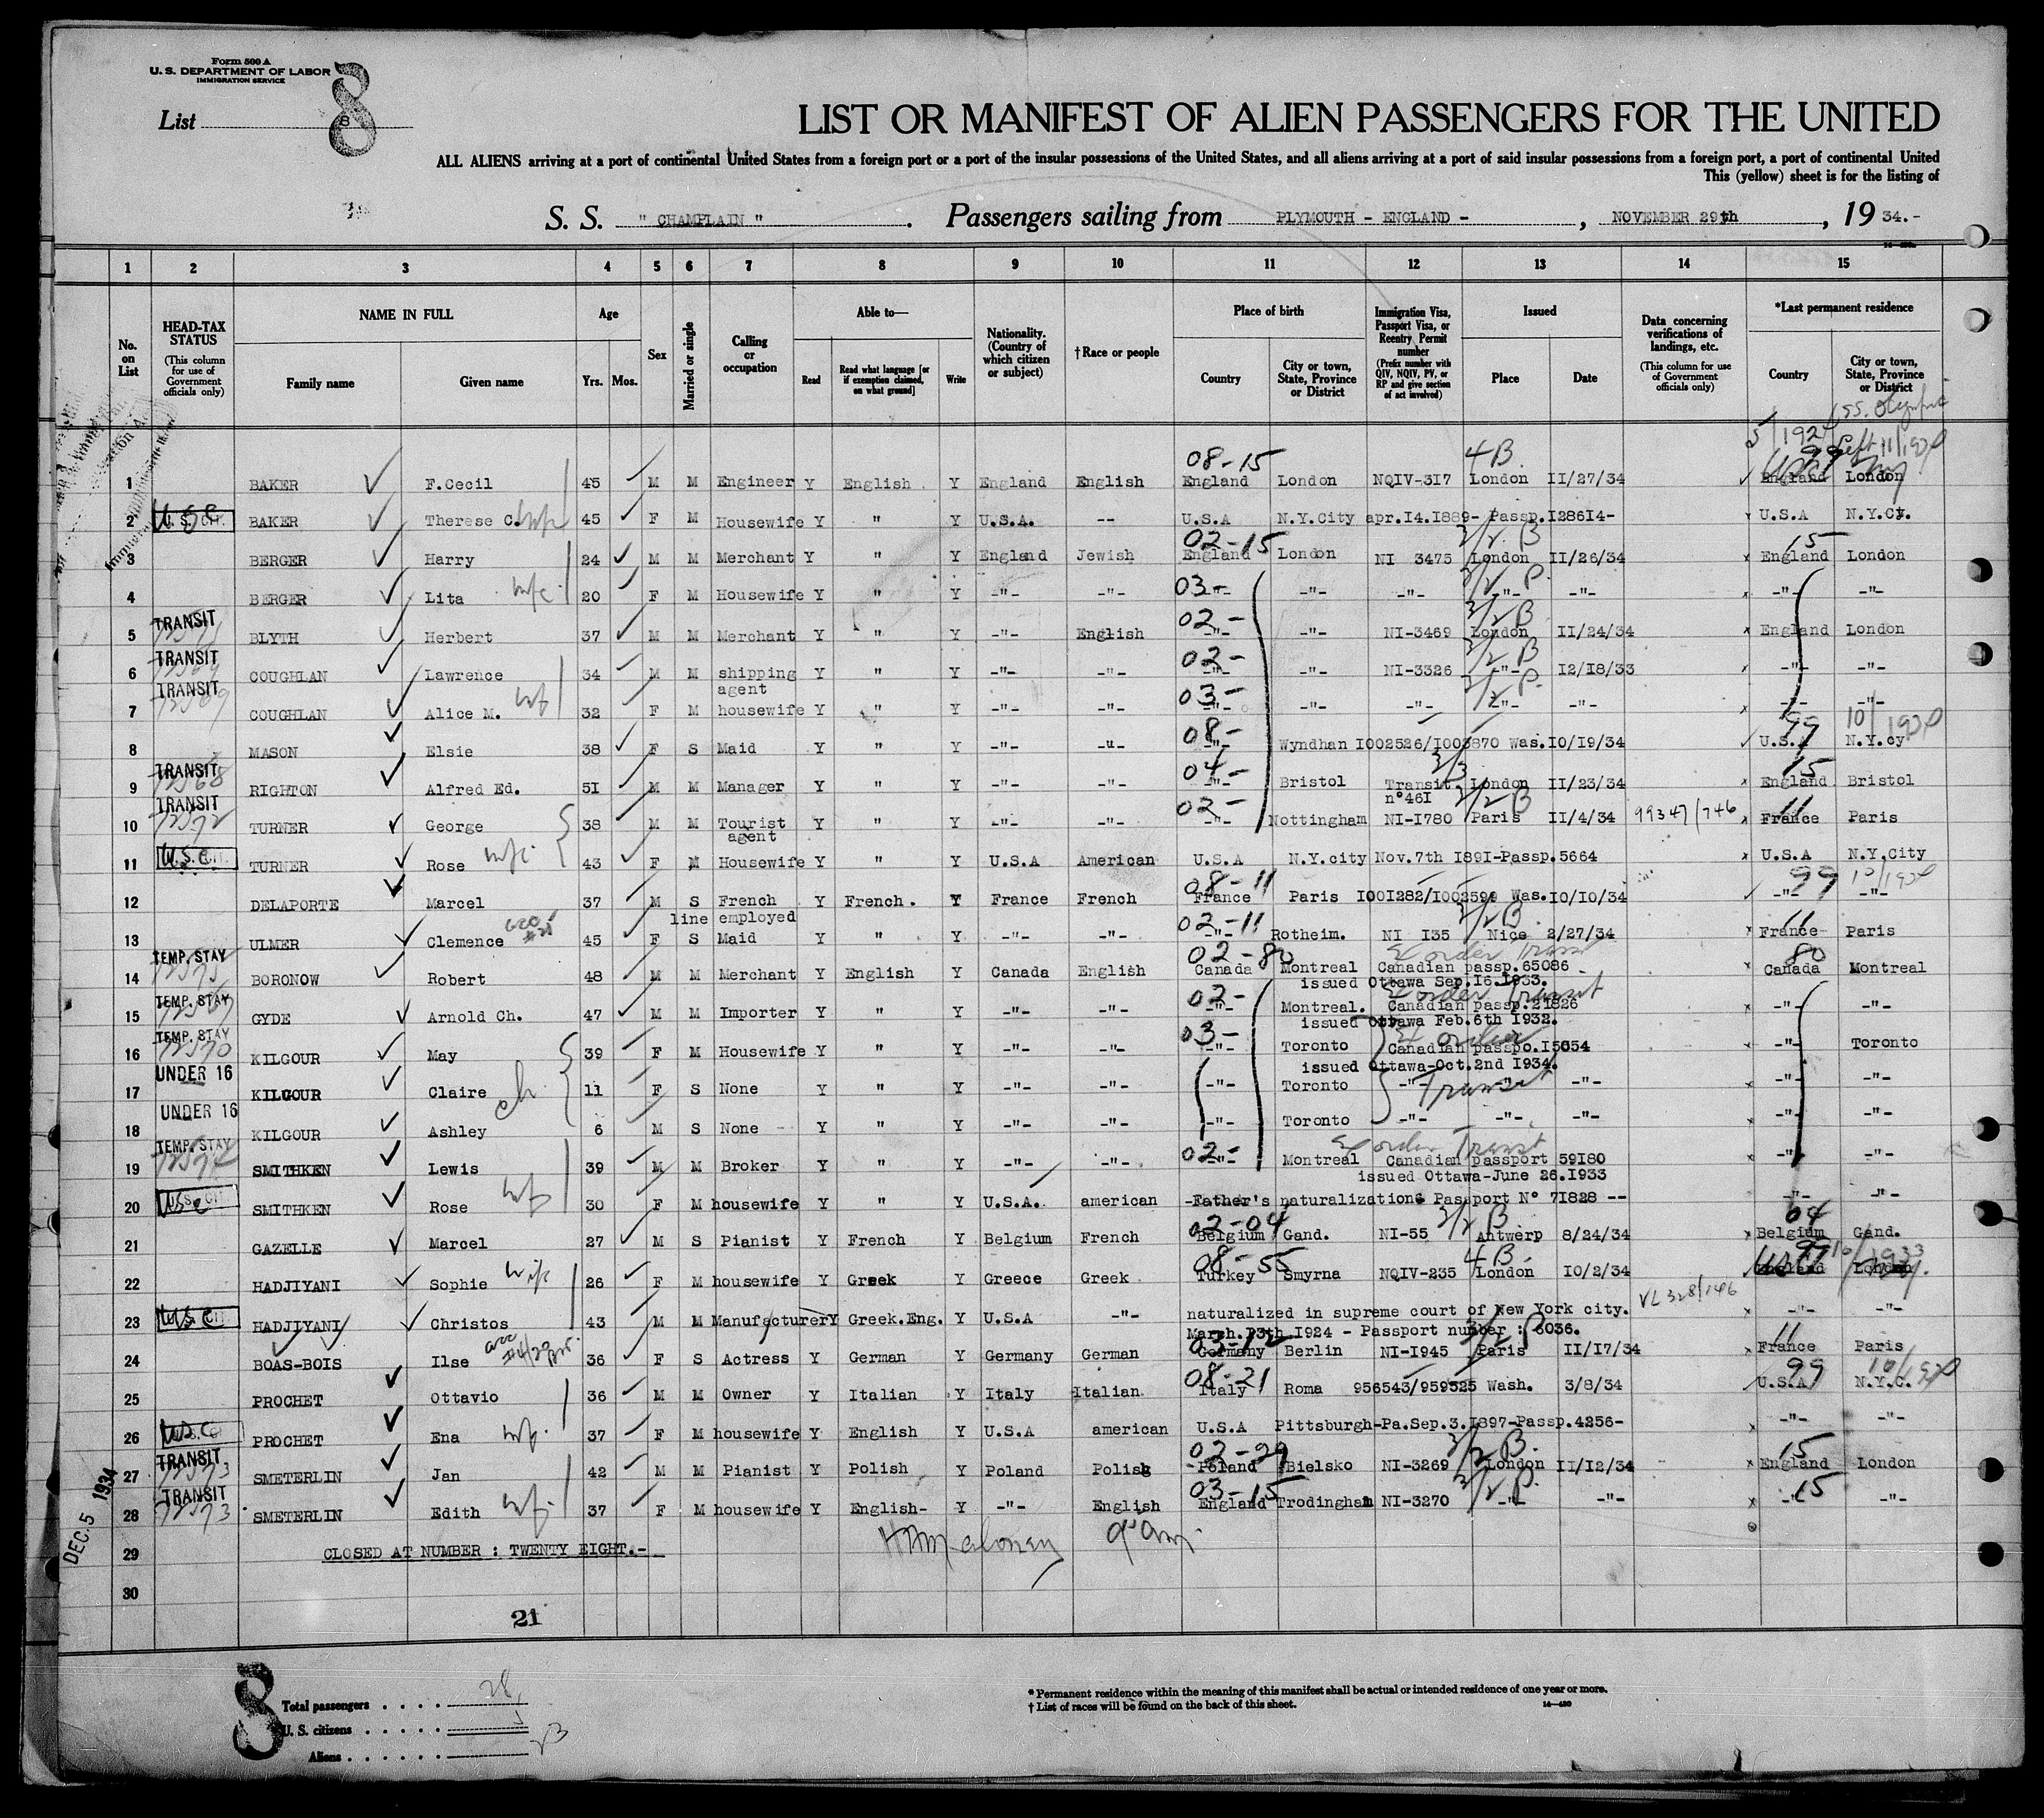 Form 500 A
U. S. DEPARTMENT OF LABOR
IMMIGRATION SERVICE
List 8
8
LIST OR MANIFEST OF ALIEN PASSENGERS FOR THE UNITED
ALL ALIENS arriving at a port of continental United States from a foreign port or a port of the insular possessions of the United States, and all aliens arriving at a port of said insular possessions from a foreign port, a port of continental United
This (yellow) sheet is for the listing of
S. S. " CHAMPLAIN ". Passengers sailing from PLYMOUTH - ENGLAND - , NOVEMBER 29th , 19 34.-
1 2 3 4 5 6 7 8 9 10 11 12 13 14 15
No. on List
HEAD-TAX STATUS (This column for use of Government officials only)
NAME IN FULL
Family name Given name
Age
Yrs. Mos.
Sex
Married or single
Calling or occupation
Able to—
Read Read what language [or if exemption claimed, on what ground] Write
Nationality. (Country of which citizen or subject)
†Race or people
Place of birth
Country City or town, State, Province or District
Immigration Visa, Passport Visa, or Reentry Permit number (Prefix number with QIV, NQIV, PV, or RP and give section of act involved)
Issued
Place Date
Data concerning verifications of landings, etc. (This column for use of Government officials only)
*Last permanent residence
Country City or town, State, Province or District
SS. Olympic
08-15 4B
1 BAKER F.Cecil 45 M M Engineer Y English Y England English England London NQIV-317 London II/27/34 England London
2 U.S. CIT. BAKER Therese C. wife 45 F M Housewife Y " Y U.S.A. -- U.S.A N.Y.City apr.I4.I889- Passp.I286I4- U.S.A N.Y.Ct.
02-15 3/2 B 15
3 BERGER Harry 24 M M Merchant Y " Y England Jewish England London NI 3475 London II/26/34 England London
03- 3/2 P.
4 BERGER Lita wfe 20 F M Housewife Y " Y -"- -"- -"- -"- -"- -"- -"- -"- -"-
02- 3/2 B
5 TRANSIT BLYTH Herbert 37 M M Merchant Y " Y -"- English -"- -"- NI-3469 London II/24/34 England London
02- 3/2 B
6 TRANSIT COUGHLAN Lawrence 34 M M shipping agent Y " Y -"- -"- -"- -"- NI-3326 -"- I2/I8/33 -"- -"-
03- 3/2 P.
7 TRANSIT COUGHLAN Alice M. wf 32 F M housewife Y " Y -"- -"- -"- -"- -"- -"- -"- -"- -"-
08- 99
8 MASON Elsie 38 F S Maid Y " Y -"- -"- -"- Wyndhan I002526/I003870 Was.I0/I9/34 U.S.A N.Y.cy
04- 3/3 15
9 TRANSIT RIGHTON Alfred Ed. 5I M M Manager Y " Y -"- -"- -"- Bristol Transit. n°46I London II/23/34 England Bristol
02- 3/2 B 11
10 TRANSIT TURNER George 38 M M Tourist agent Y " Y -"- -"- -"- Nottingham NI-I780 Paris II/4/34 99347/746 France Paris
11 U.S.C. TURNER Rose wfe 43 F M Housewife Y " Y U.S.A American U.S.A N.Y.city Nov.7th I89I-Passp.5664 U.S.A N.Y.City
08-11 99
12 DELAPORTE Marcel 37 M S French line employed Y French. Y France French France Paris I00I282/I002599 Was.I0/I0/34 -"- -"-
02-11 3/2 B 11
13 ULMER Clemence 45 F S Maid Y " Y -"- -"- -"- Rotheim. NI I35 Nice 2/27/34 France Paris
02-80 Ex order Transit 80
14 TEMP. STAY BORONOW Robert 48 M M Merchant Y English Y Canada English Canada Montreal Canadian passp.65086 issued Ottawa Sep.I6.I933. Canada Montreal
02- Ex order Transit
15 TEMP. STAY GYDE Arnold Ch. 47 M M Importer Y " Y -"- -"- -"- Montreal. Canadian passp.2I826 issued Ottawa Feb.6th I932. -"- -"-
03- Ex order
16 TEMP. STAY KILGOUR May 39 F M Housewife Y " Y -"- -"- -"- Toronto Canadian passpo.I5054 issued Ottawa-Oct.2nd I934. -"- Toronto
17 UNDER 16 KILGOUR Claire ch 11 F S None Y " Y -"- -"- -"- Toronto -"- Transit -"- -"- -"-
18 UNDER 16 KILGOUR Ashley 6 M S None Y " Y -"- -"- -"- Toronto -"- -"- -"- -"- -"-
02- Ex order Transit
19 TEMP. STAY SMITHKEN Lewis 39 M M Broker Y " Y -"- -"- -"- Montreal Canadian passport 59I80 issued Ottawa-June 26.I933 -"- -"-
20 U.S. CIT. SMITHKEN Rose wf 30 F M housewife Y " Y U.S.A. american -Father's naturalizations Passport N° 7I828 -- -"- -"-
02-04 3/2 B 04
21 GAZELLE Marcel 27 M S Pianist Y French Y Belgium French Belgium Gand. NI-55 Antwerp 8/24/34 Belgium Gand.
08-55 4B.
22 HADJIYANI Sophie wife 26 F M housewife Y Greek Y Greece Greek Turkey Smyrna NQIV-235 London I0/2/34 England London
23 U.S.C HADJIYANI Christos 43 M M Manufacturer Y Greek.Eng. Y U.S.A -"- naturalized in supreme court of New York city. March.I3th I924 - Passport number : 6036. VL 328/146 -"- -"-
03-12 3/2 P 11
24 BOAS-BOIS Ilse 36 F S Actress Y German Y Germany German Germany Berlin NI-I945 Paris II/I7/34 France Paris
08-21 99
25 PROCHET Ottavio 36 M M Owner Y Italian Y Italy Italian Italy Roma 956543/959525 Wash. 3/8/34 U.S.A N.Y.C.
26 U.S.C PROCHET Ena wf. 37 F M housewife Y English Y U.S.A american U.S.A Pittsburgh-Pa.Sep.3.I897-Passp.4256- -"- -"-
02-29 3/2 B. 15
27 TRANSIT SMETERLIN Jan 42 M M Pianist Y Polish Y Poland Polish Poland Bielsko NI-3269 London II/I2/34 England London
03-15 3/2 P. 15
28 TRANSIT SMETERLIN Edith wf. 37 F M housewife Y English- Y -"- English England Trodingham NI-3270 -"- -"- -"- -"-
29 CLOSED AT NUMBER : TWENTY EIGHT.-
30
21
DEC. 5 1934
8
Total passengers . . . . 28
U. S. citizens . . . . .
Aliens . . . . . .
* Permanent residence within the meaning of this manifest shall be actual or intended residence of one year or more.
† List of races will be found on the back of this sheet.
14—430